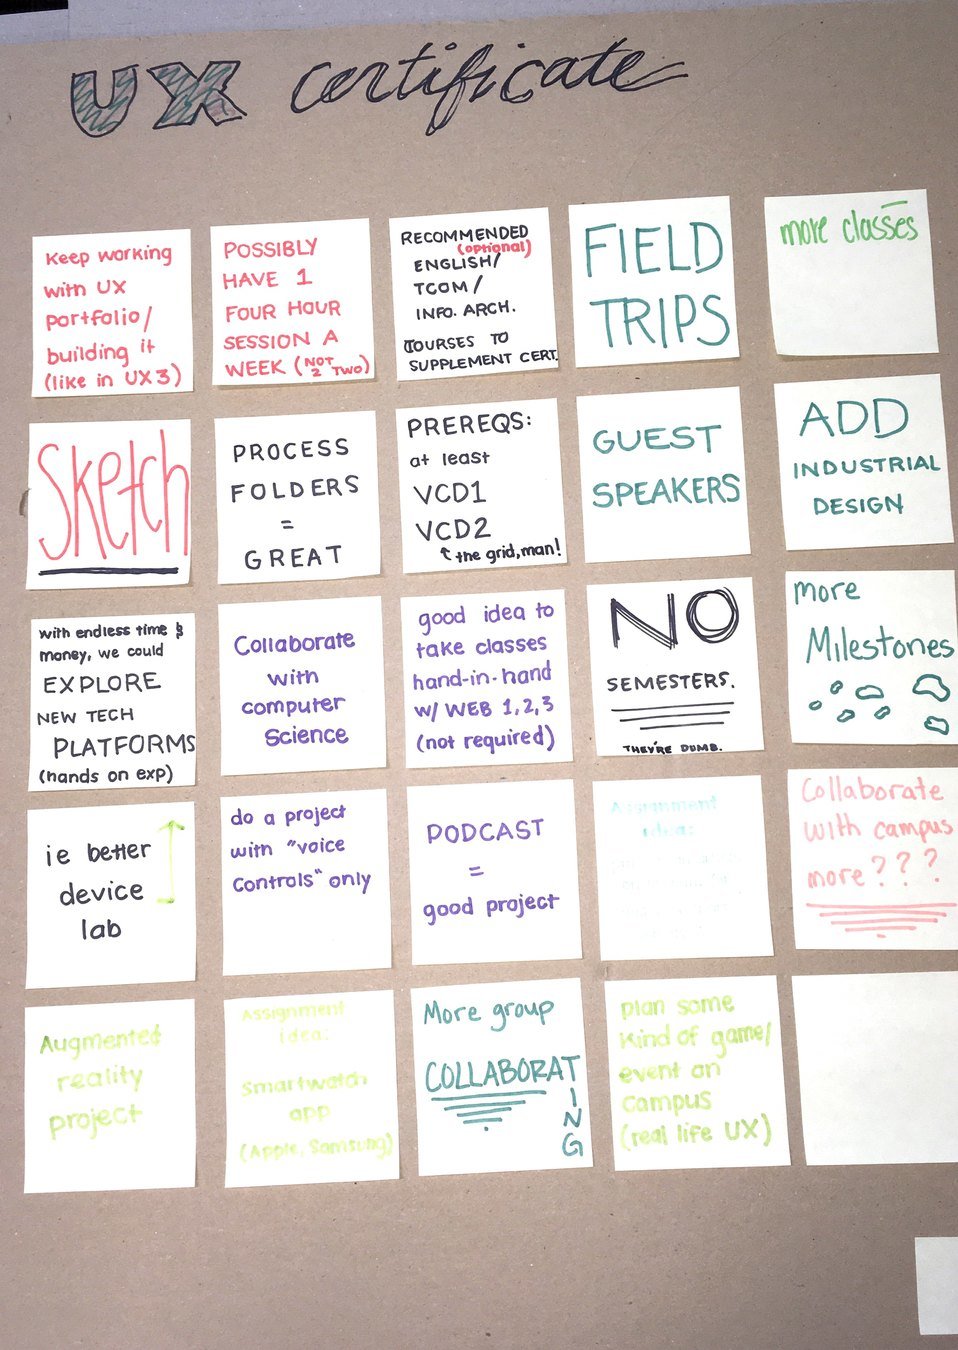 UX certificate
Keep working
with UX
portfolio/
building it
(like in UX3)
POSSIBLY
HAVE 1
FOUR HOUR
SESSION A
WEEK (NOT 2 TWO)
RECOMMENDED
(optional)
ENGLISH/
TCOM/
INFO. ARCH.
COURSES TO
SUPPLEMENT CERT.
FIELD
TRIPS
more classes
Sketch
PROCESS
FOLDERS
=
GREAT
PREREQS:
at least
VCD1
VCD2
the grid, man!
GUEST
SPEAKERS
ADD
INDUSTRIAL
DESIGN
with endless time &
money, we could
EXPLORE
NEW TECH
PLATFORMS
(hands on exp)
Collaborate
with
computer
Science
good idea to
take classes
hand-in-hand
w/ WEB 1,2,3
(not required)
NO
SEMESTERS.
THEY'RE DUMB.
more
Milestones
ie better
device
lab
do a project
with "voice
controls" only
PODCAST
=
good project
Assignment
idea:
Collaborate
with campus
more???
Augmented
reality
project
Assignment
idea:
Smartwatch
app
(Apple, Samsung)
More group
COLLABORATING
plan some
kind of game/
event on
campus
(real life UX)